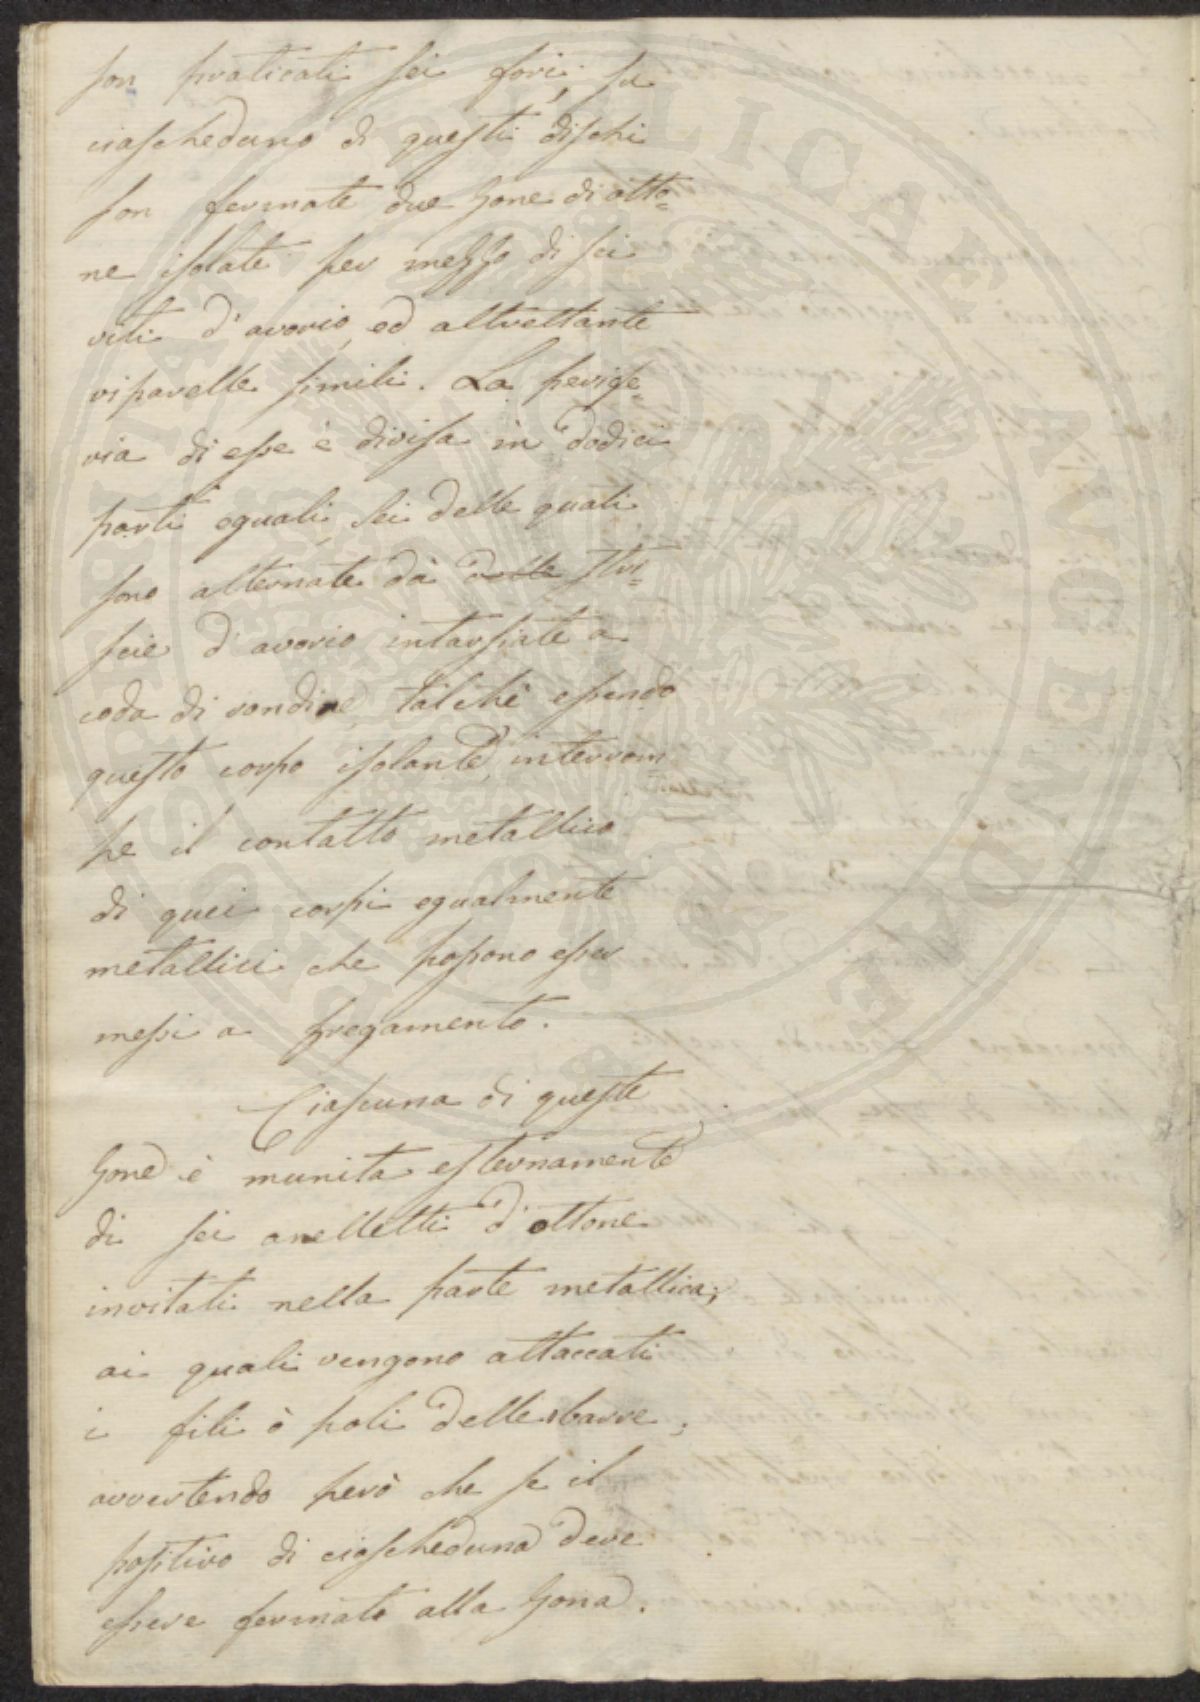 son praticati sei fori; su
ciascheduno di questi dischi
son fermate due zone di otto=
ne isolate per mezzo di sei
viti d'avorio, ed altrettante
riparelle simili. La perife=
ria di esse è divisa in dodici
parti eguali, sei delle quali
sono alternate da delle stri=
scie d'avorio intarsiate a
coda di rondine, talchè essendo
questo corpo isolante, interrom=
pe il contatto metallico
di quei corpi egualmente
metallici che possono esser
messi a fregamento.
Ciascuna di queste
zone è munita esternamente
di sei anelletti d'ottone
invitati nella parte metallica;
ai quali vengono attaccati
i fili ò poli delle sbarre;
avvertendo però che se il
positivo di ciascheduna deve
essere fermato alla zona.